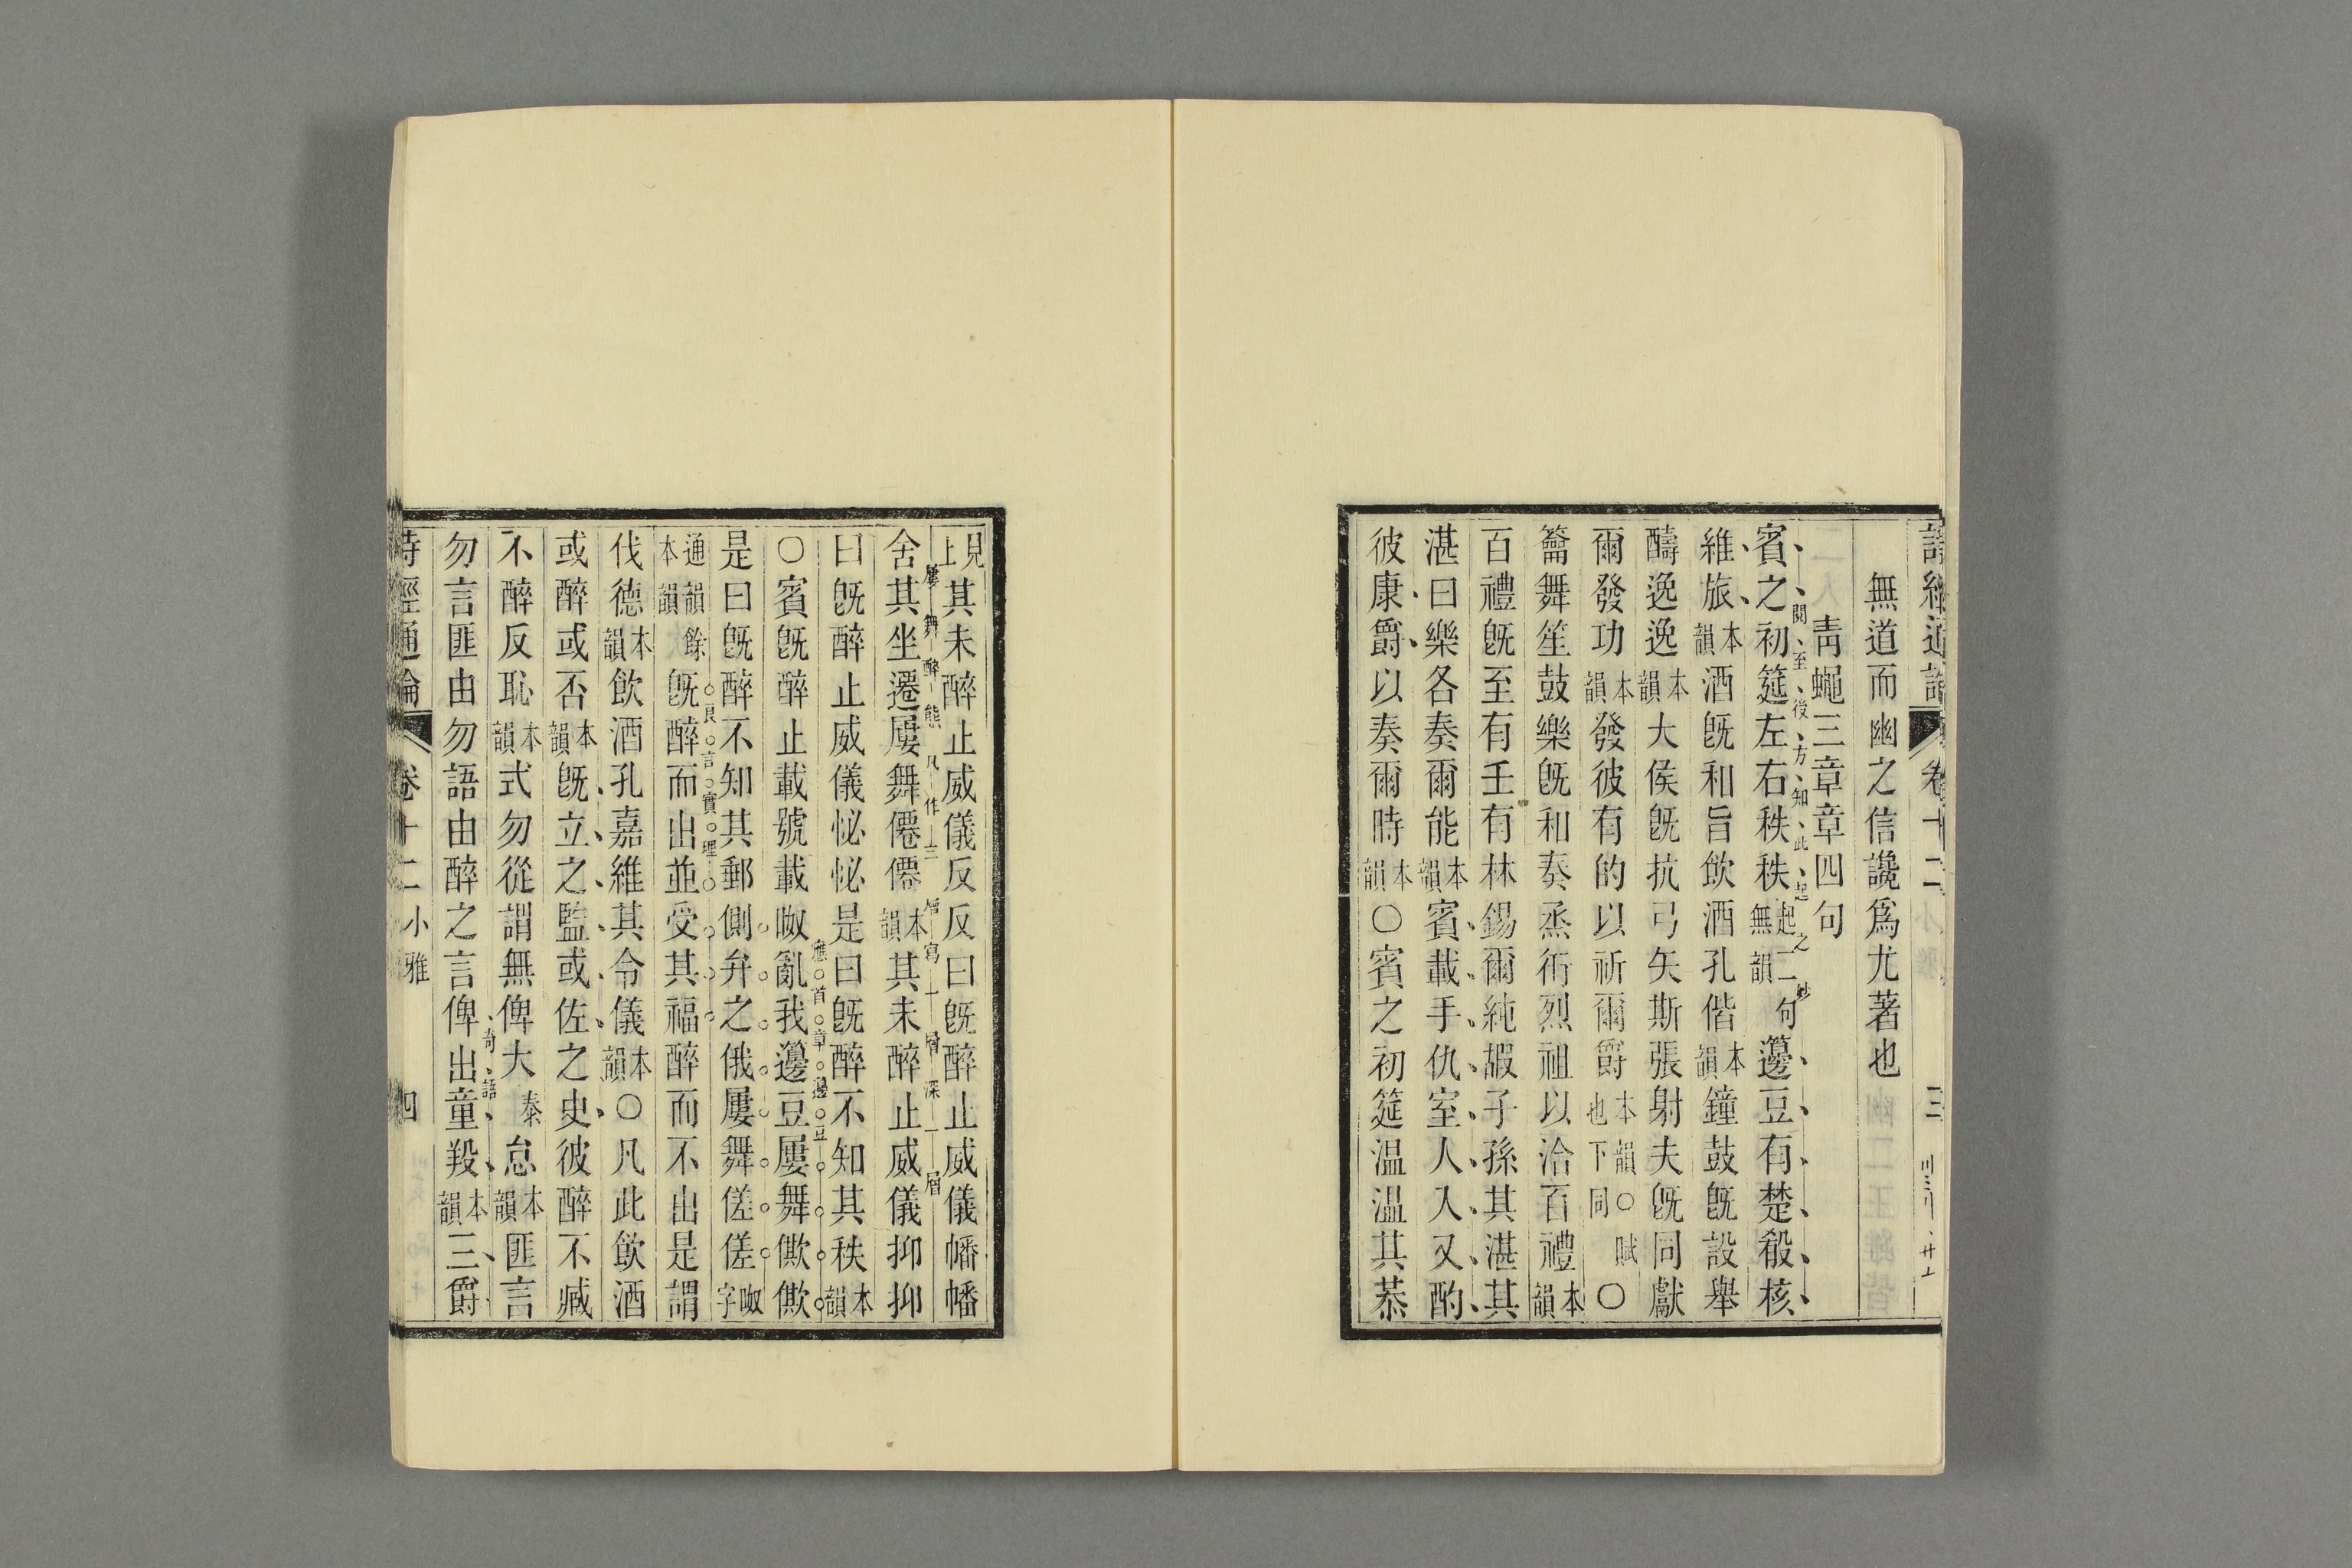 無道而幽之信讒爲尤著也
青蠅三章章四句
賓之初筵左右秩秩起二句無韻籩豆有楚殽核
閱至後方知此起之妙
維旅本韻酒旣和旨飲酒孔偕本韻鐘鼓旣設舉
醻逸逸本韻大侯旣抗弓矢斯張射夫旣同獻
爾發功本韻發彼有的以祈爾爵本韻○賦也下同○
籥舞笙鼓樂旣和奏烝衎烈祖以洽百禮本韻
百禮旣至有壬有林錫爾純嘏子孫其湛其
湛曰樂各奏爾能本韻賓載手仇室人入又酌
彼康爵以奏爾時本韻○賓之初筵温温其恭
見上其未醉止威儀反反曰旣醉止威儀幡幡
屢舞醉態凡作三層寫一層深一層
舍其坐遷屢舞僊僊本韻其未醉止威儀抑抑
曰旣醉止威儀怭怭是曰旣醉不知其秩本韻
應首章籩豆
○賓旣醉止載號載呶亂我籩豆屢舞僛僛
是曰旣醉不知其郵側弁之俄屢舞傞傞呶字
良言實理
通韻餘本韻旣醉而出並受其福醉而不出是謂
伐德本韻飲酒孔嘉維其令儀本韻○凡此飲酒
或醉或否本韻旣立之監或佐之史彼醉不臧
不醉反恥本韻式勿從謂無俾大泰怠本韻匪言
奇語
勿言匪由勿語由醉之言俾出童羖本韻三爵
詩經通論 卷十二 小雅 四